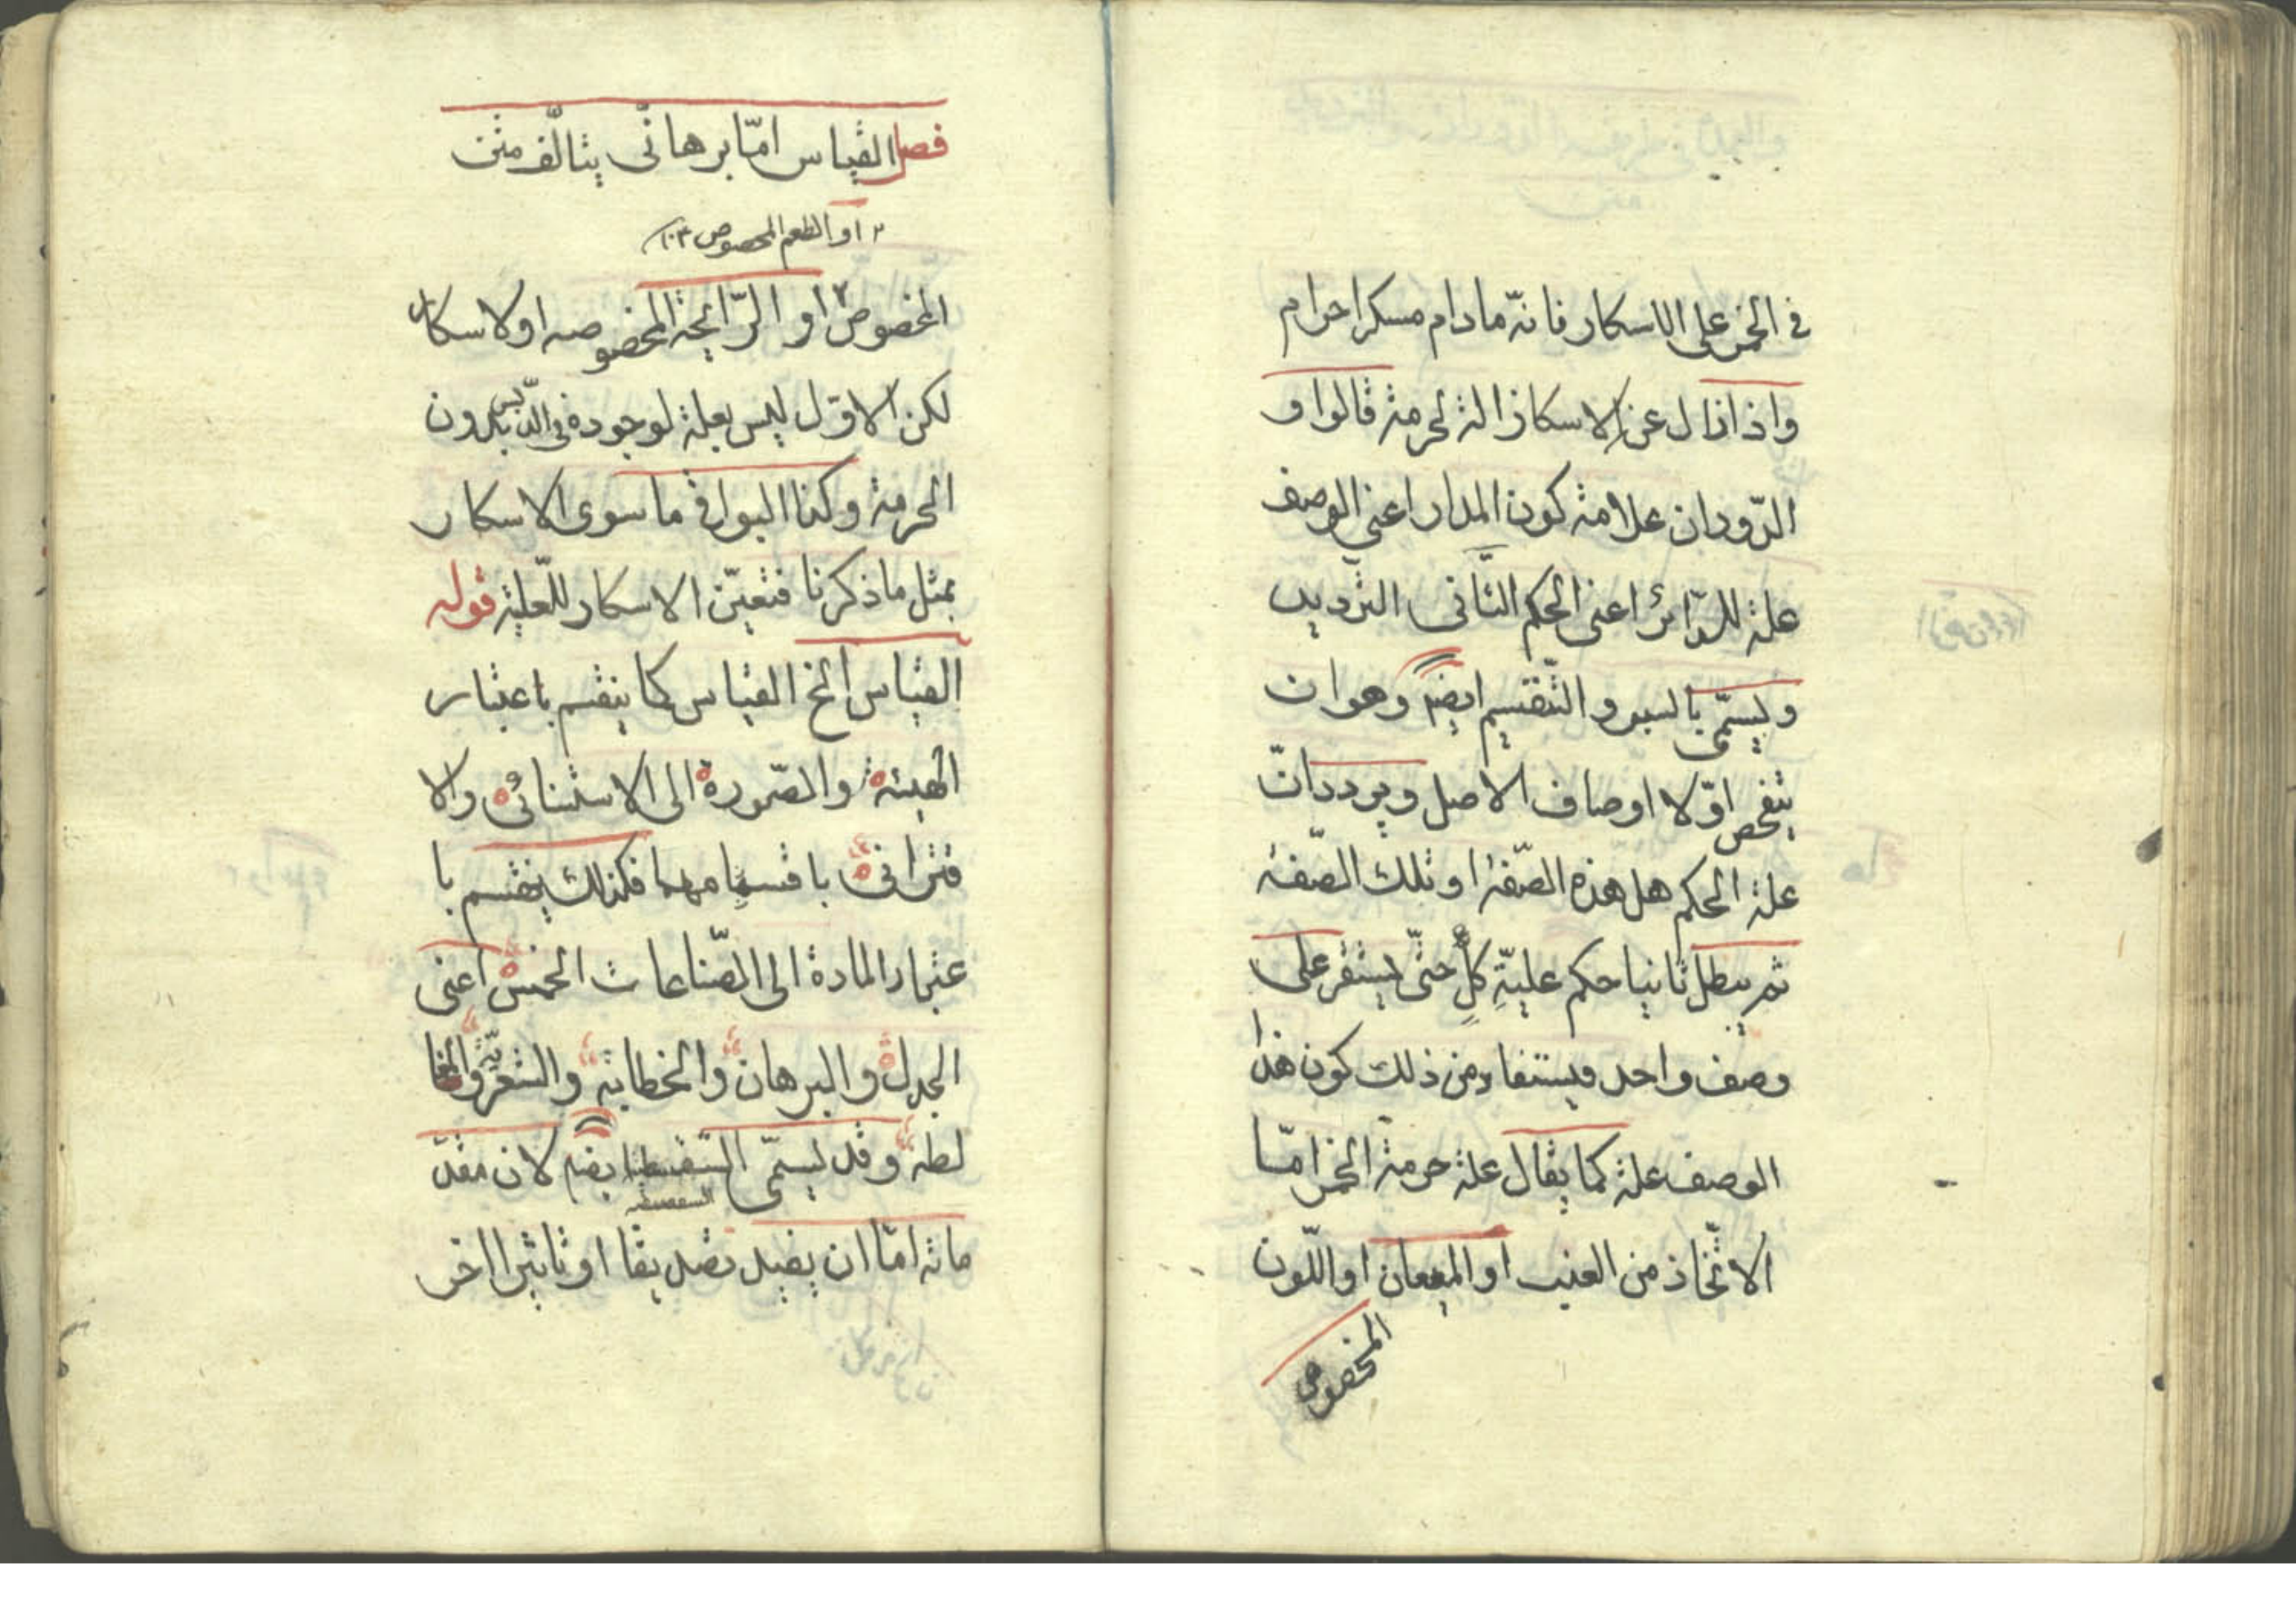 في الخمر على الاسكار فانّه مادام مسكرا حرام
واذا زال عن الاسكار زالة لحرمة قالوا و
الدّوران علامة كون المدار اعني الوصف
علة للدّائر اعني الحكم الثّاني الترديد
ويسمّى بالسبر والتّقسيم ايضا وهو ان
يتفحص اوّلا اوصاف الاصل ويردد انّ
علة الحكم هل هذه الصّفة او تلك الصّفة
ثم يبطل ثانيا حكم عليّةِ كلٍّ حتّى يستقر على
وصف واحد فيستفاد من ذلك كون هذا
الوصف علة كما يقال علة حرمة الخمر امّا
الاتّخاذ من العنب او الميعان او اللّون
المخصوص
فصل القياس امّا برهانّي يتالّف من
٢ او الطعم المخصوص
المخصوص ٢ او الرّائحة المخصوصه او لاسكار
لكن الاوّل ليس بعلة لوجوده في الدّبس بدون
الحرمة وكذا البواقي ما سوى الاسكار
بمثل ما ذكرنا فتعيّن الاسكار للعلّية قوله
القياس الخ القياس كما ينقسم باعتبار
الهيئة والصّورة الى الاستثنائي والا
قتراني باقسامهما فكذلك ينقسم با
عتبار المادة الى الصّناعات الخمس اعني
الجدل والبرهان والخطابة والشعريّة والمغا
لطه وقد يسمّى السّفسطة ايضا لان مقدّ
السفسطه
ماته امّا ان يفيد تصديقا او تاثيرا اخر